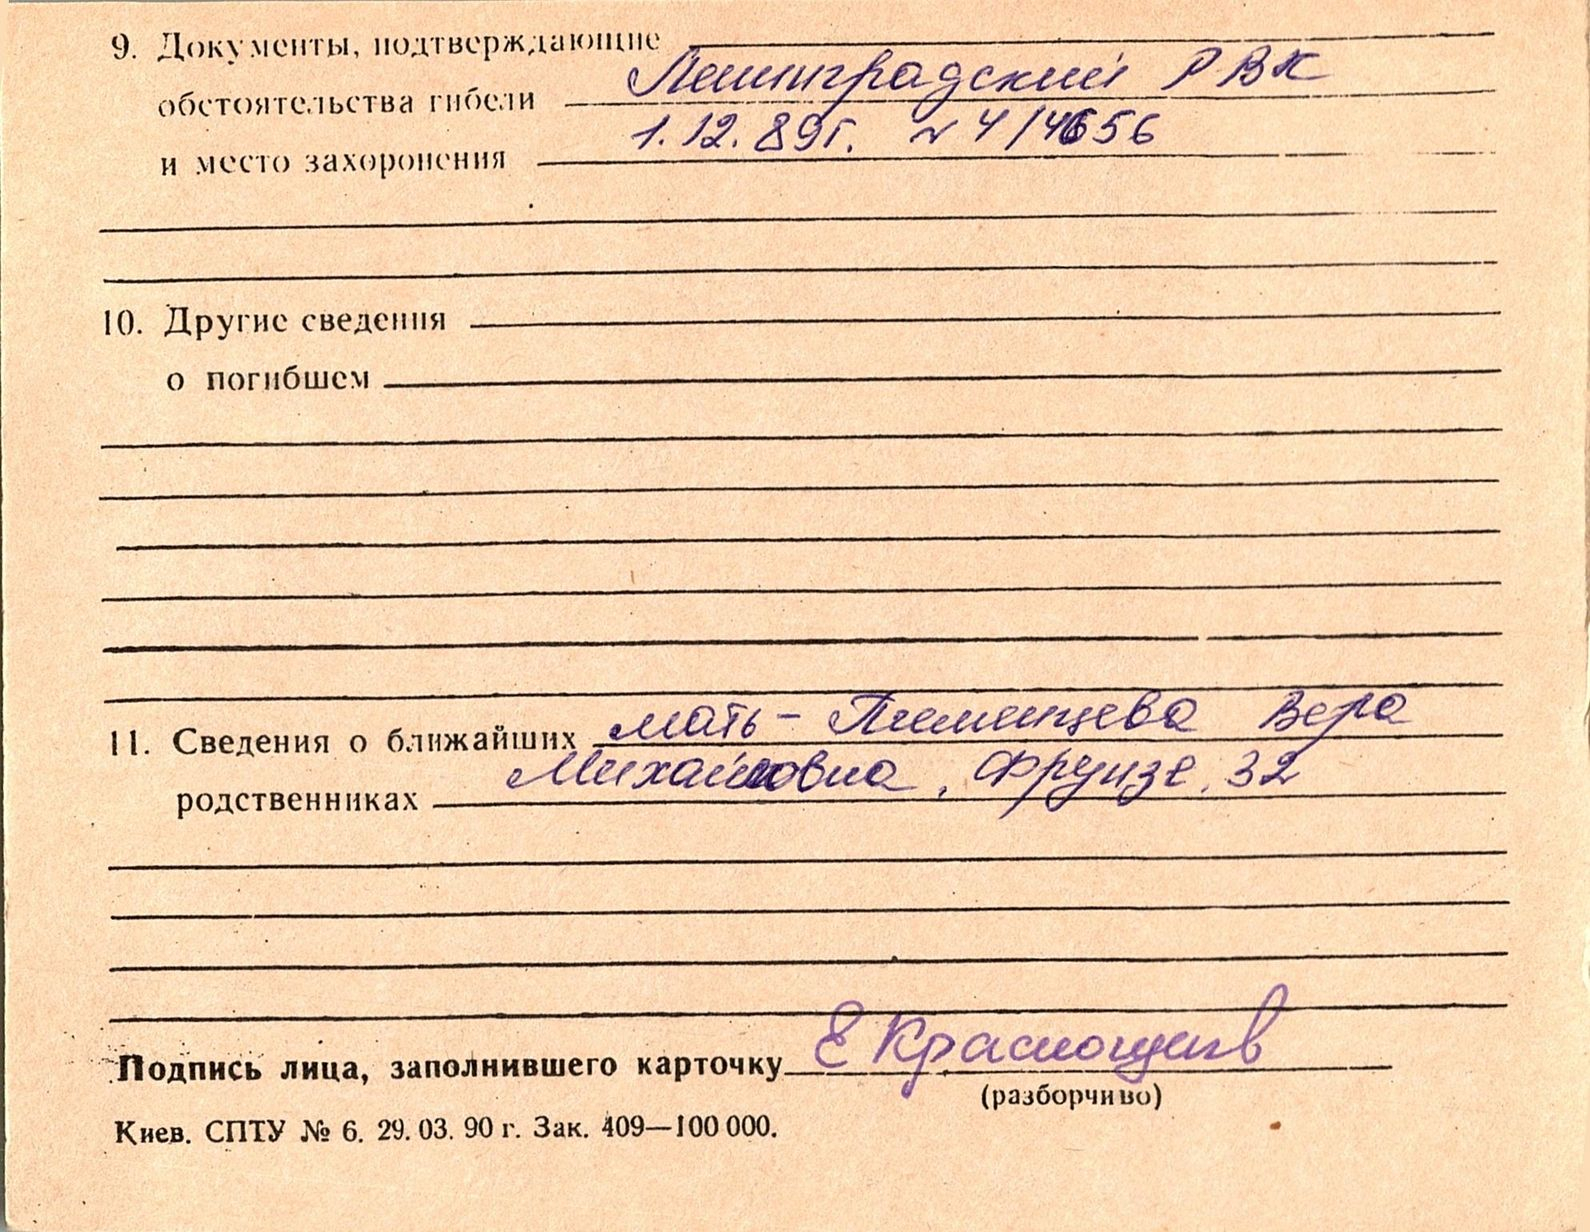 9. Документы, подтверждающие
Ленинградский РВК
обстоятельства гибели
1.12.89г. N 4/4656
и место захоронения
10. Другие сведения
о погибшем
11. Сведения о ближайших мать - Вера
родственниках Михайловна, Фрунзе, 32
Подпись лица, заполнившего карточку Е
(разборчиво)
Киев. СПТУ № 6. 29.03.90 г. Зак. 409—100 000.